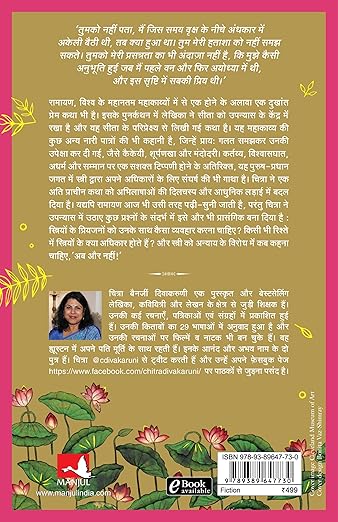 ‘तुमको नहीं पता, मैं जिस समय वृक्ष के नीचे अंधकार में
अकेली बैठी थी, तब क्या हुआ था। तुम मेरी हताशा को नहीं समझ
सकते। तुमको मेरी प्रसन्नता का भी अंदाज़ा नहीं है, कि मुझे कैसी
अनुभूति हुई जब मैं पहले वन और फिर अयोध्या में थी,
और इस सृष्टि में सबकी प्रिय थी।’
रामायण, विश्व के महानतम महाकाव्यों में से एक होने के अलावा एक दुखांत
प्रेम कथा भी है। इसके पुनर्कथन में लेखिका ने सीता को उपन्यास के केंद्र में
रखा है और यह सीता के परिप्रेक्ष्य से लिखी गई कथा है। यह महाकाव्य की
कुछ अन्य नारी पात्रों की भी कहानी है, जिन्हें प्रायः गलत समझकर उनकी
उपेक्षा कर दी गई, जैसे कैकेयी, शूर्पणखा और मंदोदरी। कर्तव्य, विश्वासघात,
अधर्म और सम्मान पर एक सशक्त टिप्पणी होने के अतिरिक्त, यह पुरुष-प्रधान
जगत में स्त्री द्वारा अपने अधिकारों के लिए संघर्ष की भी गाथा है। चित्रा ने एक
अति प्राचीन कथा को अभिलाषाओं की दिलचस्प और आधुनिक लड़ाई में बदल
दिया है। यद्यपि रामायण आज भी उसी तरह पढ़ी-सुनी जाती है, परंतु चित्रा ने
उपन्यास में उठाए कुछ प्रश्नों के संदर्भ में इसे और भी प्रासंगिक बना दिया है :
स्त्रियों के प्रियजनों को उनके साथ कैसा व्यवहार करना चाहिए? किसी भी रिश्ते
में स्त्रियों के क्या अधिकार होते हैं? और स्त्री को अन्याय के विरोध में कब कहना
चाहिए, ‘अब और नहीं!’
चित्रा बैनर्जी दिवाकरुणी एक पुरस्कृत और बेस्टसेलिंग
लेखिका, कवियित्री और लेखन के क्षेत्र से जुड़ी शिक्षक हैं।
उनकी कई रचनाएँ, पत्रिकाओं एवं संग्रहों में प्रकाशित हुई
हैं। उनकी किताबों का 29 भाषाओं में अनुवाद हुआ है और
उनकी रचनाओं पर फ़िल्में व नाटक भी बन चुके हैं। वह
ह्यूस्टन में अपने पति मूर्ति के साथ रहती हैं। इनके आनंद और अभय नाम के दो
पुत्र हैं। चित्रा @cdivakaruni से ट्वीट करती हैं और उन्हें अपने फ़ेसबुक पेज
https://www.facebook.com/chitradivakaruni/ पर पाठकों से जुड़ना पसंद है।
MANJUL
www.manjulindia.com
eBook
available
ISBN 978-93-89647-73-0
9 789389 647730
Fiction
₹499
Cover image Cleveland Museum of Art
Cover design Bonita Vaz-Shimray